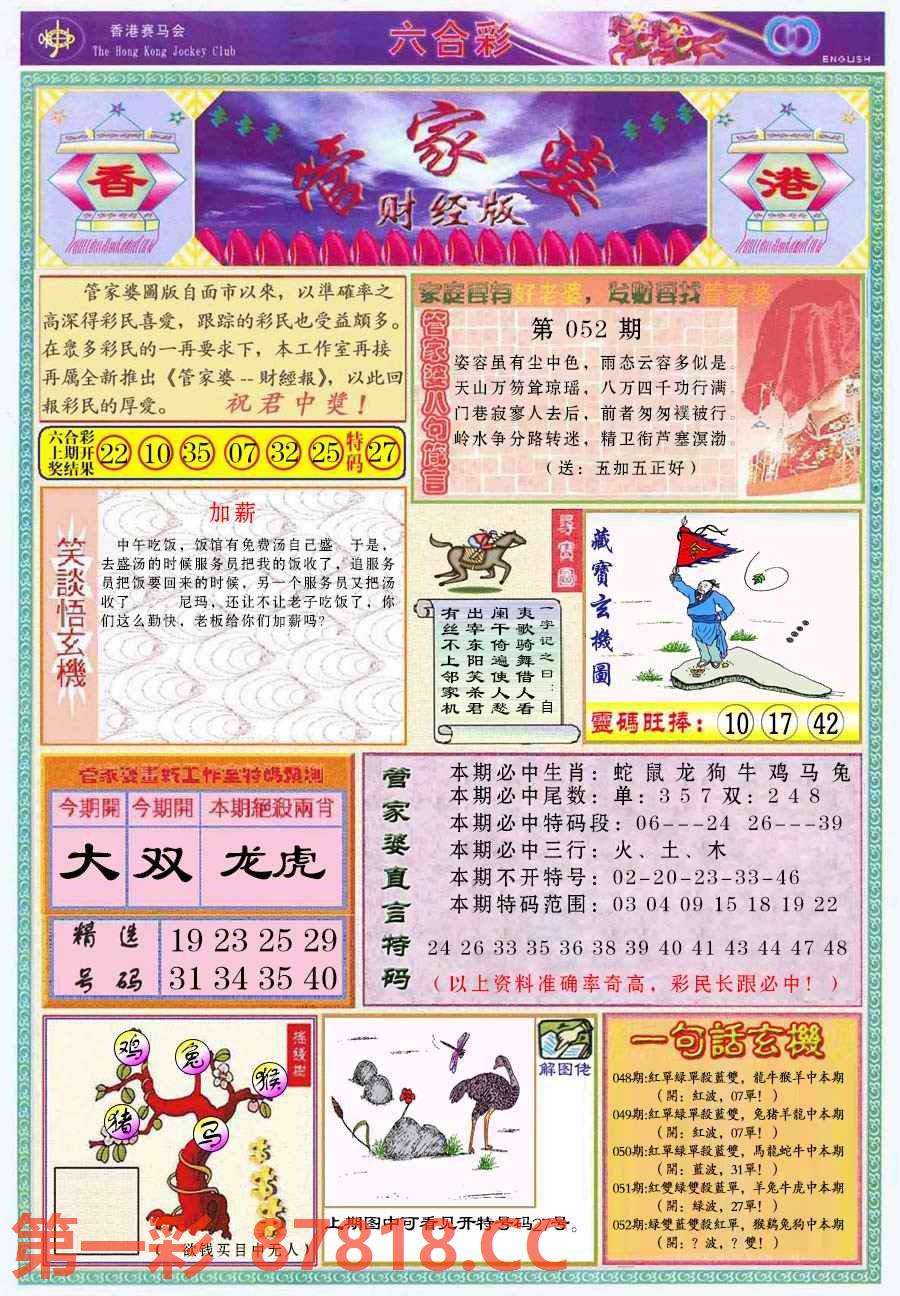 香港赛马会
The Hong Kong Jockey Club
六合彩
ENGLISH
香
港
管家婆
财经版
管家婆圖版自面市以來，以準確率之
高深得彩民喜愛，跟踪的彩民也受益頗多。
在衆多彩民的一再要求下，本工作室再接
再厲全新推出《管家婆--財經報》，以此回
報彩民的厚愛。
祝君中獎！
六合彩
上期开
奖结果
22 10 35 07 32 25
特码
27
家庭要有好老婆，发财要找管家婆
管家婆八句箴言
第 052 期
姿容虽有尘中色，雨态云容多似是。
天山万笏耸琼瑶，八万四千功行满。
门巷寂寥人去后，前者匆匆襆被行。
岭水争分路转迷，精卫衔芦塞溟渤。
（送：五加五正好）
笑談悟玄機
加薪
中午吃饭，饭馆有免费汤自己盛 于是，
去盛汤的时候服务员把我的饭收了，追服务
员把饭要回来的时候，另一个服务员又把汤
收了 尼玛、还让不让老子吃饭了，你
们这么勤快，老板给你们加薪吗？
尋寶圖
一字记之曰：自
夷歌骑舞借人看
阑干倚遍使人愁
出宰东阳笑杀君
有丝不上邻家机
藏寶玄機圖
靈碼旺捧：
10 17 42
管家婆畫敉工作室特碼預測
今期開
今期開
本期絕殺兩肖
大
双
龙虎
精选
号码
19 23 25 29
31 34 35 40
管家婆直言特码
本期必中生肖：蛇 鼠 龙 狗 牛 鸡 马 兔
本期必中尾数：单：3 5 7 双：2 4 8
本期必中特码段：06---24 26---39
本期必中三行：火、土、木
本期不开特号：02-20-23-33-46
本期特码范围：03 04 09 15 18 19 22
24 26 33 35 36 38 39 40 41 43 44 47 48
（以上资料准确率奇高，彩民长跟必中！）
摇錢樹
鸡
兔
猴
猪
马
（ 欲钱买目中无人）
解图佬
上期图中可看见开特号码27号。
一句話玄機
048期:紅單綠單殺藍雙，龍牛猴羊中本期
（開：紅波，07單！）
049期:紅單綠單殺藍雙，兔猪羊龍中本期
（開：紅波，07單！）
050期:紅單綠單殺藍雙，馬龍蛇牛中本期
（開：藍波，31單！）
051期:紅雙綠雙殺藍單，羊兔牛虎中本期
（開：綠波，27單！）
052期:绿雙藍雙殺紅單，猴鷄兔狗中本期
（開：？波，？雙！）
第一彩 87818.CC